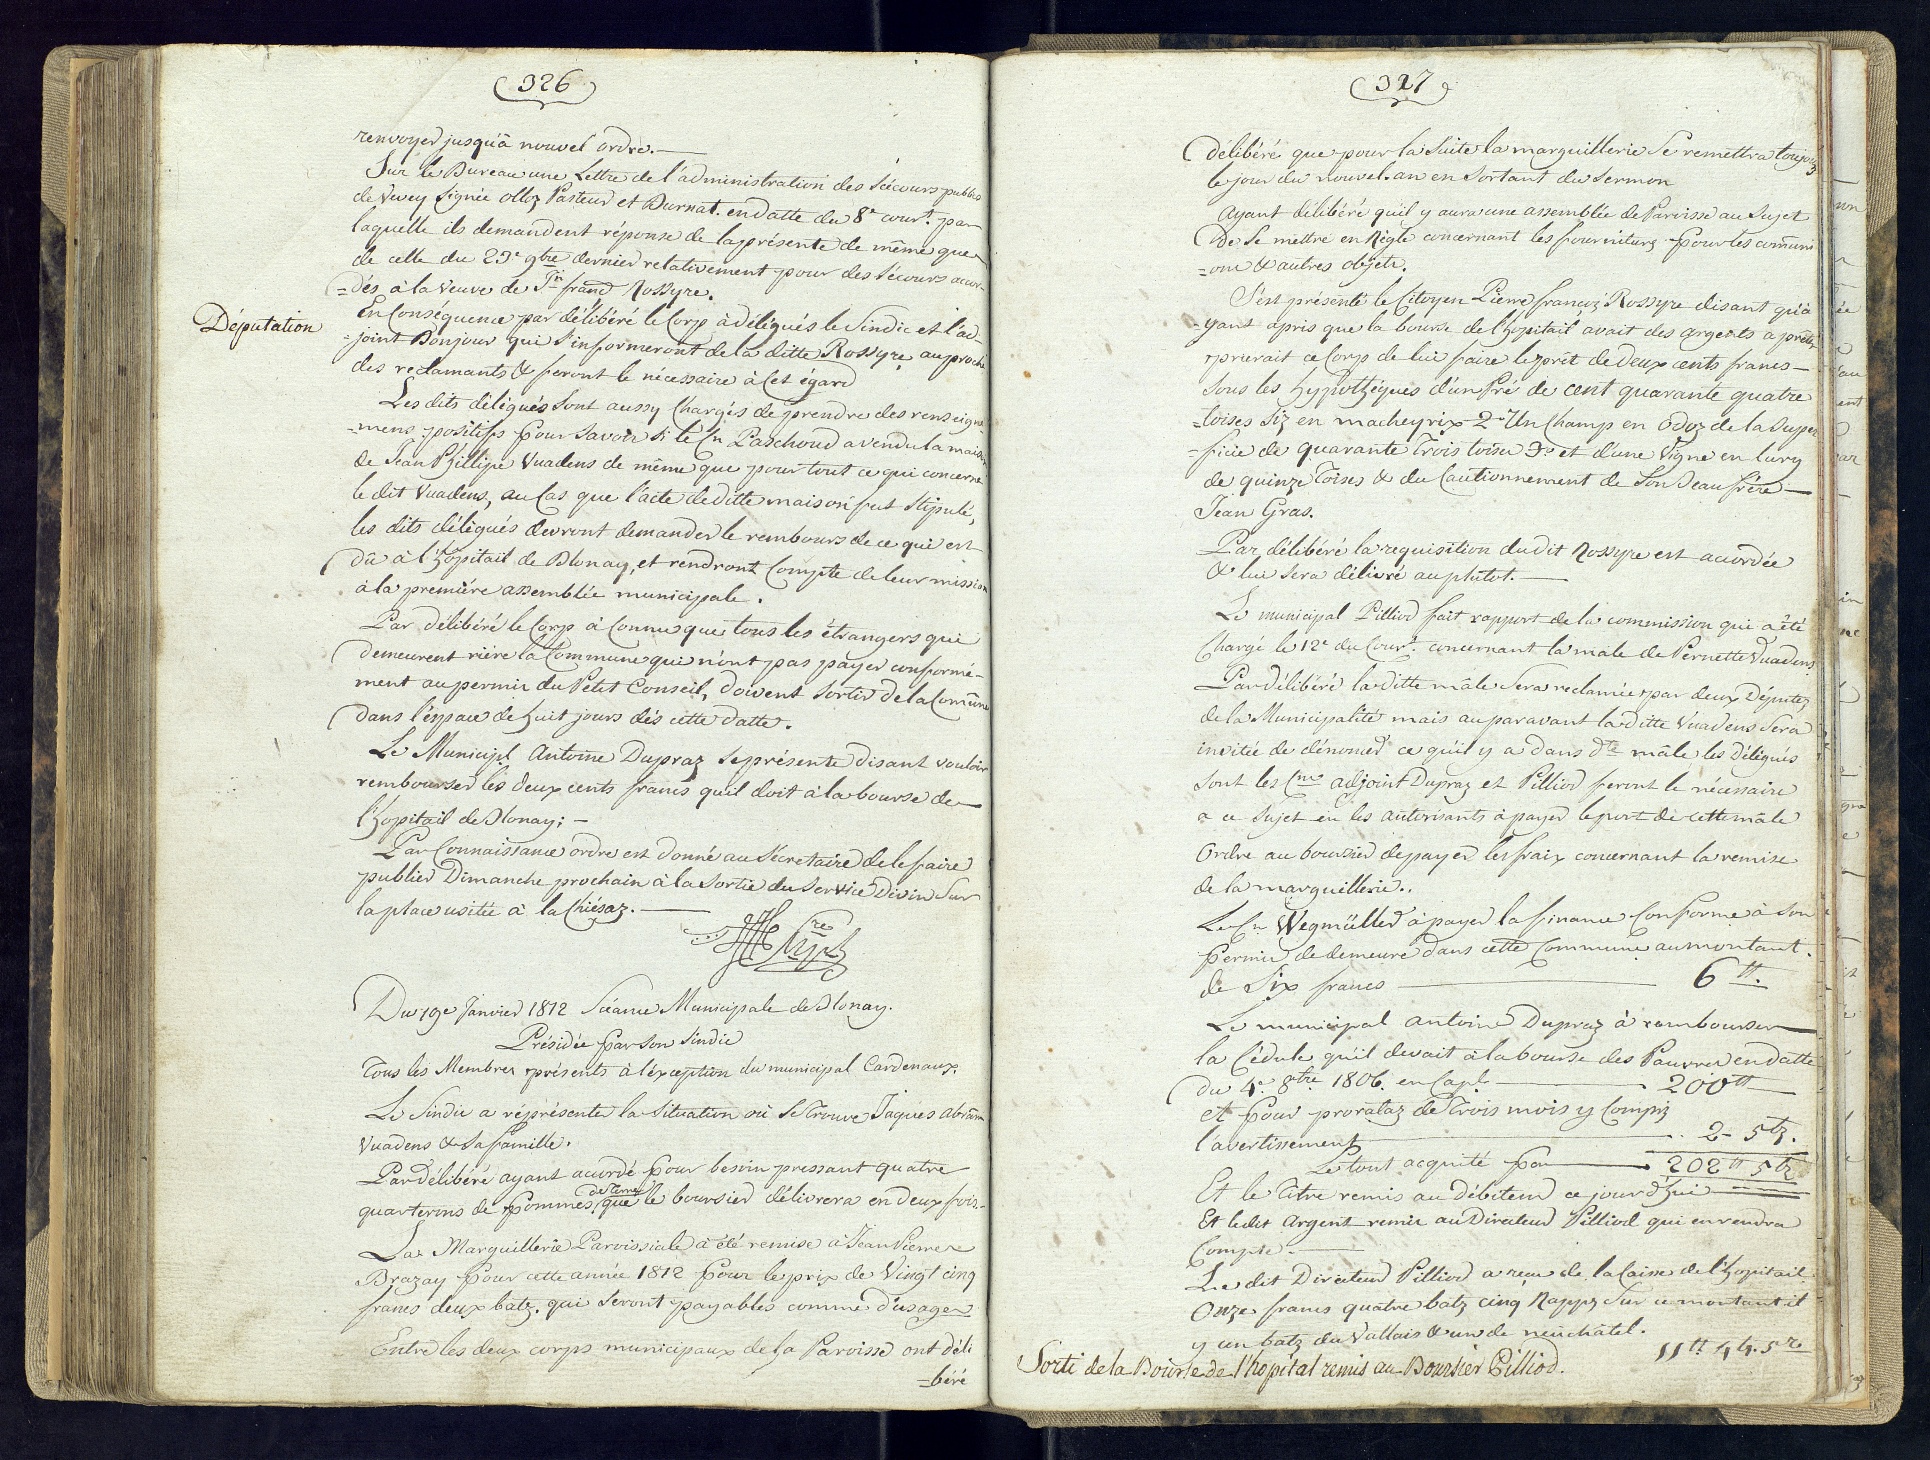 (326)
renvoyer jusqu'à nouvel ordre. —
Sur le Bureau une Lettre de l'administration des sécours publics
de Vevey signée Pasteur et Burnat. en datte du 8e cour.t par
laquelle ils demandent réponse de la présente de même que
de celle du 23e 9bre dernier relativement pour des sécours accor-
=dés à la veuve de frand Rossyre.
Députation
En Conséquence par délibéré le Corp à délégués le Sindic et l'ad-
=joint Bonjour qui s'informeront de la ditte Rossyre, auproche
des reclamants & feront le nécessaire à Cet égard
Les dits délégués sont aussy Chargés de prendre des renseigne-
=mens positifs pour savoir si le Cn Paschoud a vendu la maison
de Jean Phillipe Vuadens de même que pour tout ce qui concerne
le dit Vuadens, au Cas que l'acte de ditte maison fut stipulé,
les dits délégués devront demander le rembours de ce qui est
dû à l'hôpitail de Blonay, et rendront Compte de leur mission
à la première assemblée municipale.
Par délibéré le Corp à Connu que tous les étrangers qui
demeurent rière la Commune qui n'ont pas payer conformé-
ment au permis du Petit Conseil, doivent sortir de la Comune
dans l'éspace de huit jours dés cette datte.
Le Municipl Antoine Dupraz se présente disant vouloir
rembourser les deux cents francs qu'il doit à la bourse de
l'hopitail de Blonay; —
Par Connaissance ordre est donné au Sécretaire de le faire
publier Dimanche prochain à la sortie du Service Divin Sur
la place usitée à la Chiésaz. —
Du 19e Janvier 1812 Séance Municipale de Blonay.
Présidée par son Sindic
Tous les Membres présents à l'éxception du municipal Cardenaux.
Le Sindic a réprésenter la situation où se trouve Jaques Abram
Vuadens & sa famille.
Par délibéré ayant acordé pour besoin pressant quatre
quarterons de pommes de terre que le boursier délivrera en deux fois.
La Marguillerie Paroissiale à été remise à Jean Pierre
Brazay pour cette année 1812 pour le prix de Vingt cinq
francs deux batz. qui seront payables comme d'usage
Entre les deux corps municipaux de la Paroisse ont déli
=béré
(327)
délibéré que pour la Suite la marguillerie Se remettra toujours
le jour du nouvel an en Sortant du Sermon
Ayant délibéré qu'il y aura une assemblée de Paroisse au Sujet
de Se mettre en Règle concernant les fournitures pour les comuni
=ons & autres objets.
S'est présenté le Citoyen Pierre françs Rossyre disant qu'à
=yant apris que la bourse de l'hopitail avait des argents a prêter,
prierait ce Corp de lui faire le prêt de Deux cents francs —
Sous les hypothéques d'un Pré de cent quarante quatre
=toises Siz en macheyrix 2° Un Champ en Odoz de la Super
=ficie de quarante Trois toises 3° et d'une Vigne en Lury
de quinze Toises & du Cautionnement de Son Beaufrére —
Jean Gras.
Par délibéré la requisition dudit Rossyre est acordée
& lui sera délivré au plutot. —
Le municipal Pilliod fait rapport de la commission qui a été
Chargé le 12e du Cour.t concernant la male de Pernette Vuadens
Par délibéré la ditte mâle Sera reclamée par deux Députez
de la Municipalité mais auparavant la ditte Vuadens Sera
invitée de dénomer ce qu'il y a dans dte mâle les Délégués
sont les Cns adjoint Dupraz et Pilliod feront le nécessaire
a ce Sujet en les autorisants à payer le port de cette mâle
Ordre au boursier de payer les fraix concernant la remise
de la marguillerie.
Le Cn Wegmüller à payer la finance Conforme à son
permis de demeure dans cette Commune au montant.
de Six francs — 6 tt.
Le municipal antoine Dupraz à rembourser
la Cédule qu'il devait à la bourse des Pauvres en datte
du 4e 8bre 1806. en Capl — 200 tt
et pour prorataz de Trois mois y Compris
l'avertissement — 2 - 5 tz.
Le tout acquité par — 202 tt 5 tz
Et le Titre remis au débiteur ce jourd'hui
Et ledit Argent remis au Directeur Pilliod qui en rendra
Compte. —
Le dit Directeur Pilliod a reçu de la Caisse de l'hopitail
Onze francs quatre batz cinq Rappz Sur ce montant il
y un batz du Vallais & un de neuchâtel.
11 tt 4 tz. 5 rs
Sorti de la Bourse de l'hopital remis au Boursier Pilliod.